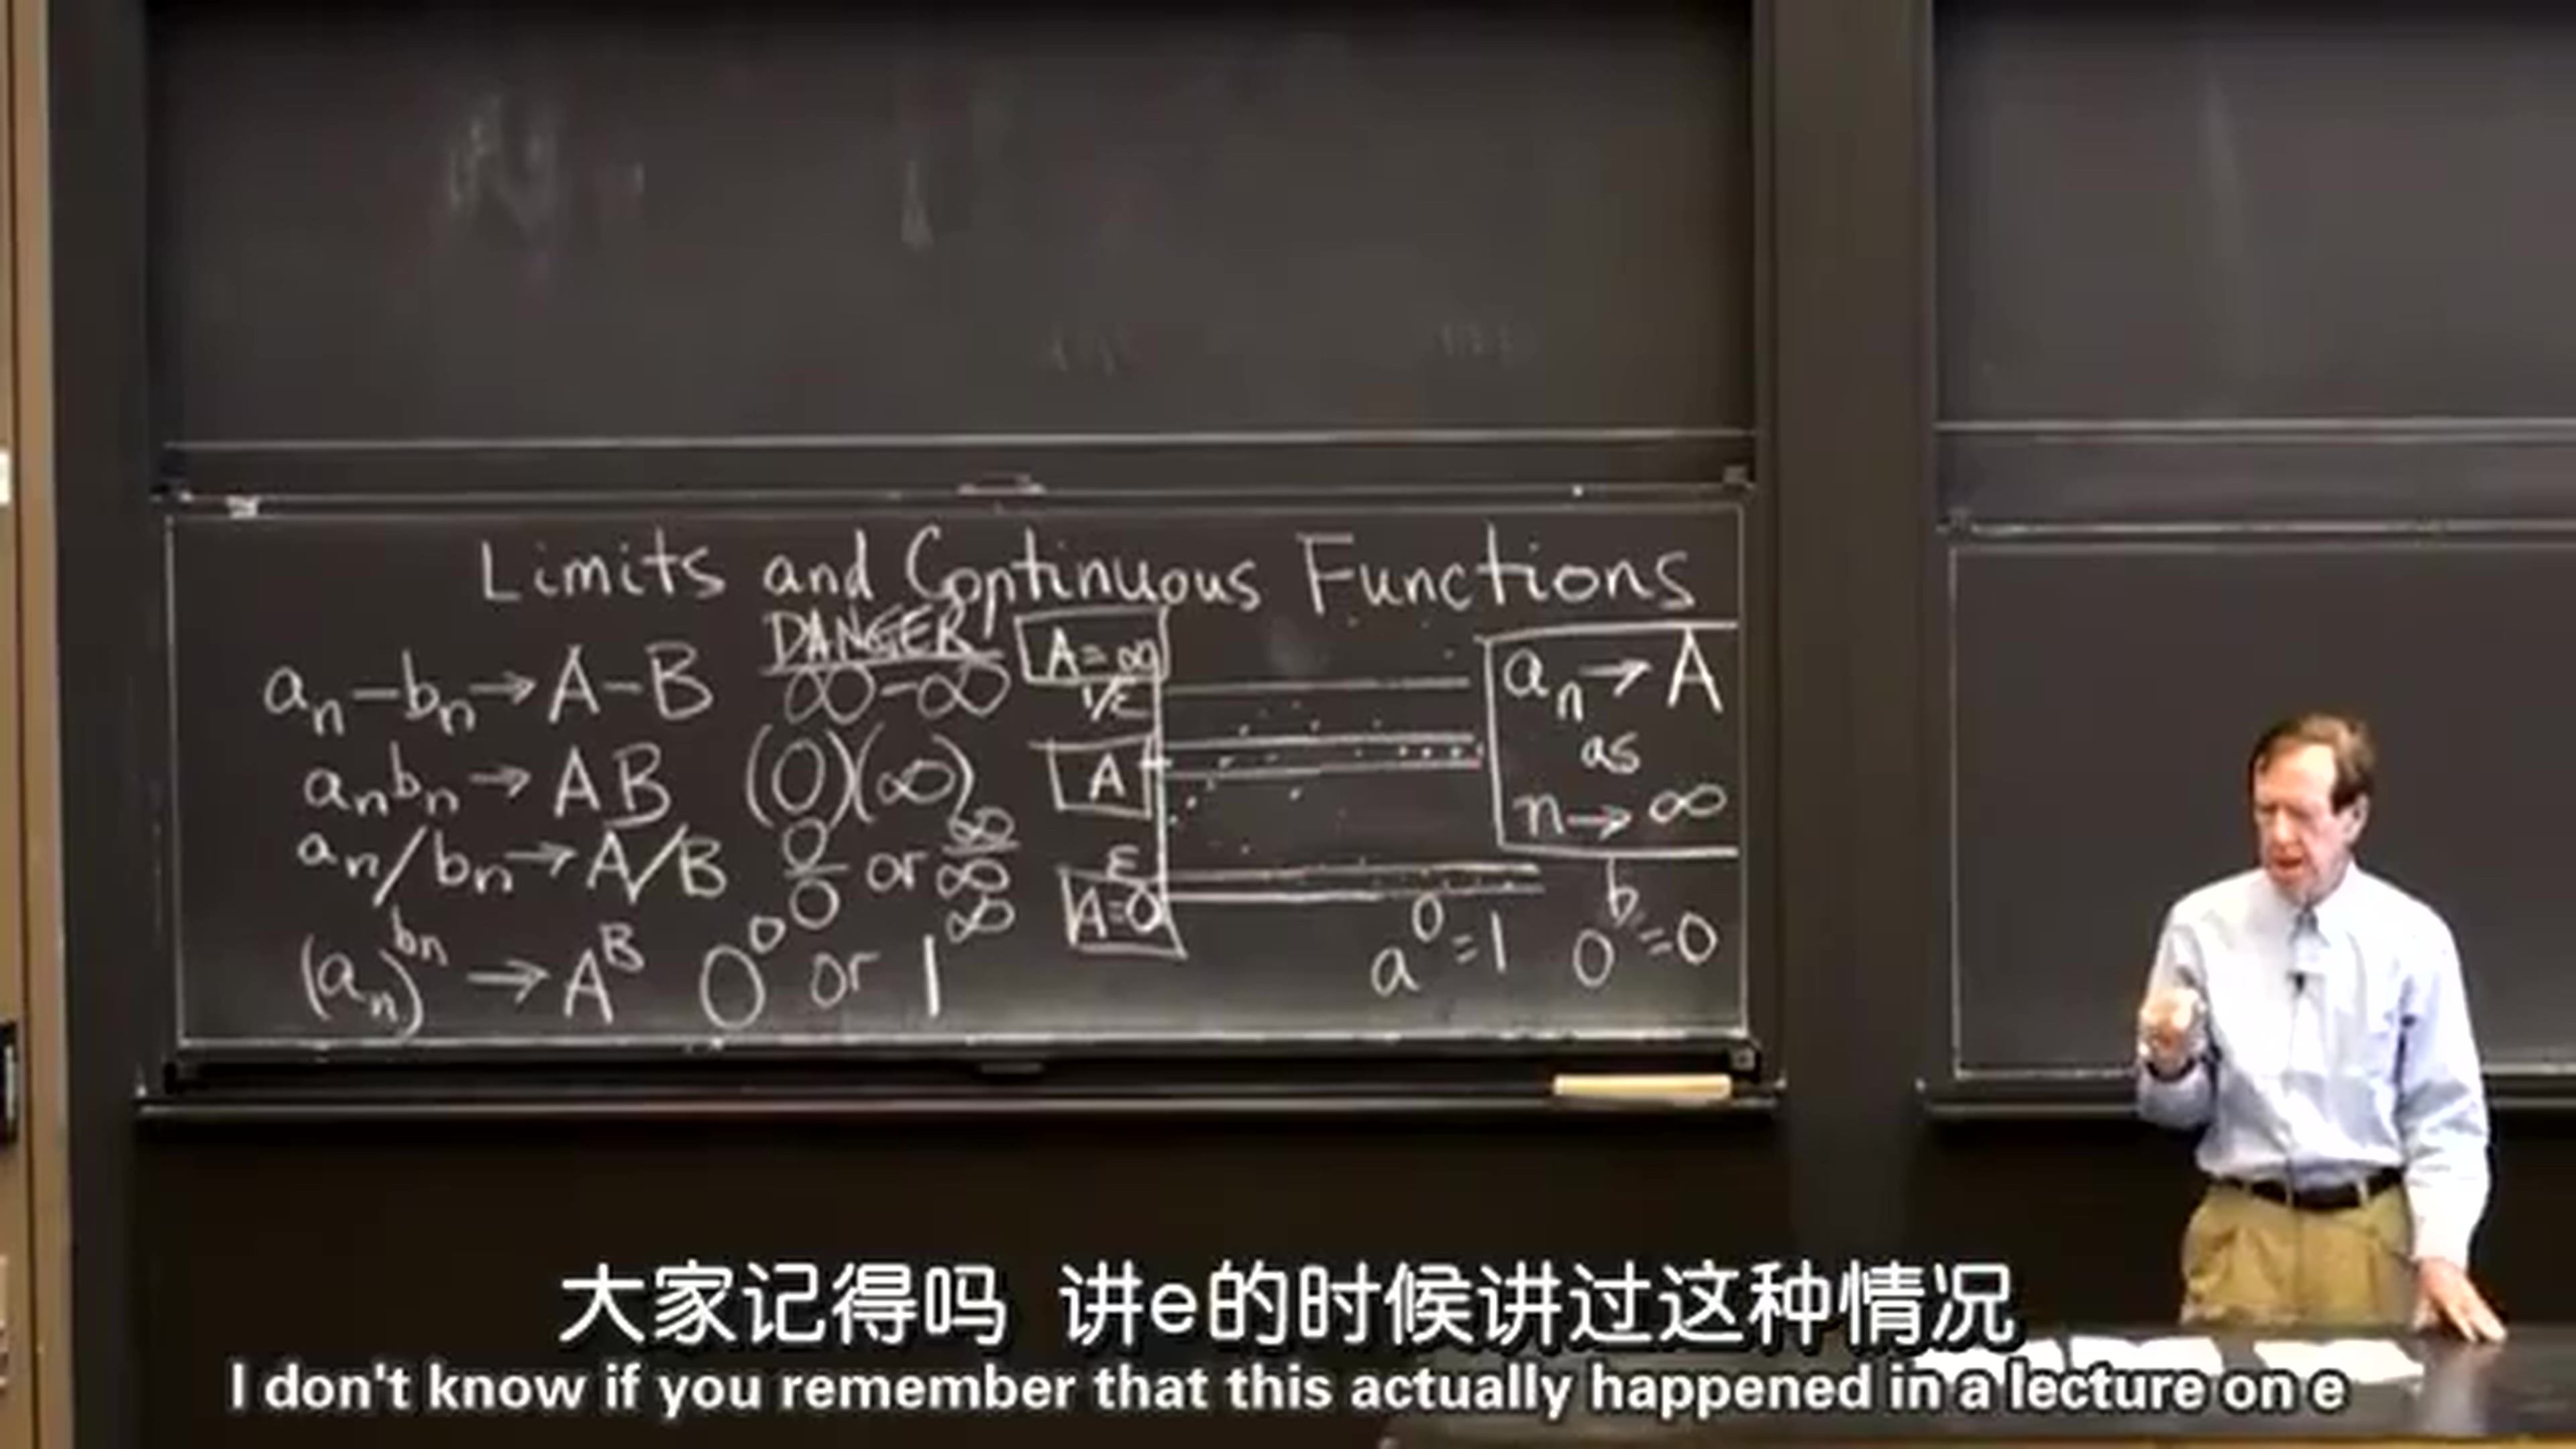 Limits and Continuous Functions
DANGER
aₙ−bₙ→A−B ∞−∞
aₙbₙ→AB (0)(∞)
aₙ/bₙ→A/B 0/0 or ∞/∞
(aₙ)^bₙ→A^B 0^0 or 1^∞
A=∞
1/ε
A
ε
A=0
aₙ→A
as
n→∞
a^0=1 0^b=0
大家记得吗 讲e的时候讲过这种情况
I don't know if you remember that this actually happened in a lecture on e